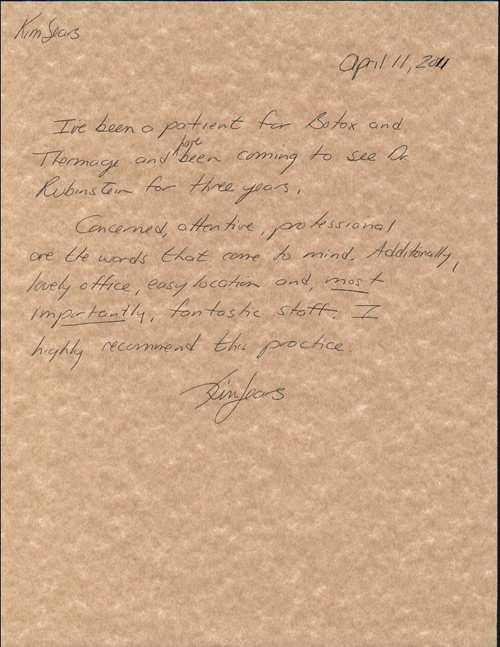 Kim Sears
April 11, 2011
I've been a patient for Botox and
Thermage and have been coming to see Dr
Rubinstein for three years.
Concerned, attentive, professional
are the words that come to mind. Additionally,
lovely office, easy location and, most
importantly, fantastic staff. I
highly recommend this practice.
Kim Sears